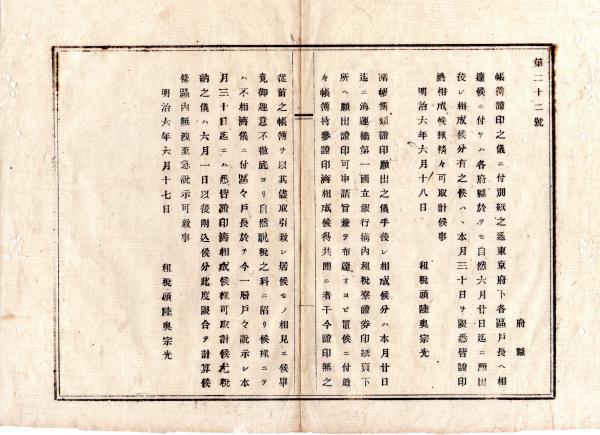 第二十二號
府縣
帳簿證印之儀ニ付別紙之通東京府下各區戸長ヘ相
達候ニ付テハ各府縣於テモ自然六月廿日迄ニ願出
後レ相成候分有之候ハヽ本月三十日ヲ限悉皆證印
濟相成候樣精々可取計候事
明治六年六月十八日
租税頭陸奥宗光
諸帳簿類證印願出之儀手後レ相成候分ハ本月廿日
迄ニ海運橋第一國立銀行構内租税寮證券印紙賣下
所ヘ願出證印可申請旨兼テ布達オヨビ置候ニ付追
々帳簿持參證印濟相成候得共間ニ者于今證印無之
從前之帳簿ヲ以其儘取引致シ居候モノ相見エ候畢
竟御趣意不徹底ヨリ自然脱税之科ニ陷リ候樣ニテ
ハ不相濟儀ニ付區々戸長於テ今一層戸々説示シ本
月三十日迄ニハ悉皆證印濟相成候樣可取計候尤税
納之儀ハ六月一日以後附込候分此度限合テ計算候
條區内無洩至急説示可致事
明治六年六月十七日
租税頭陸奥宗光